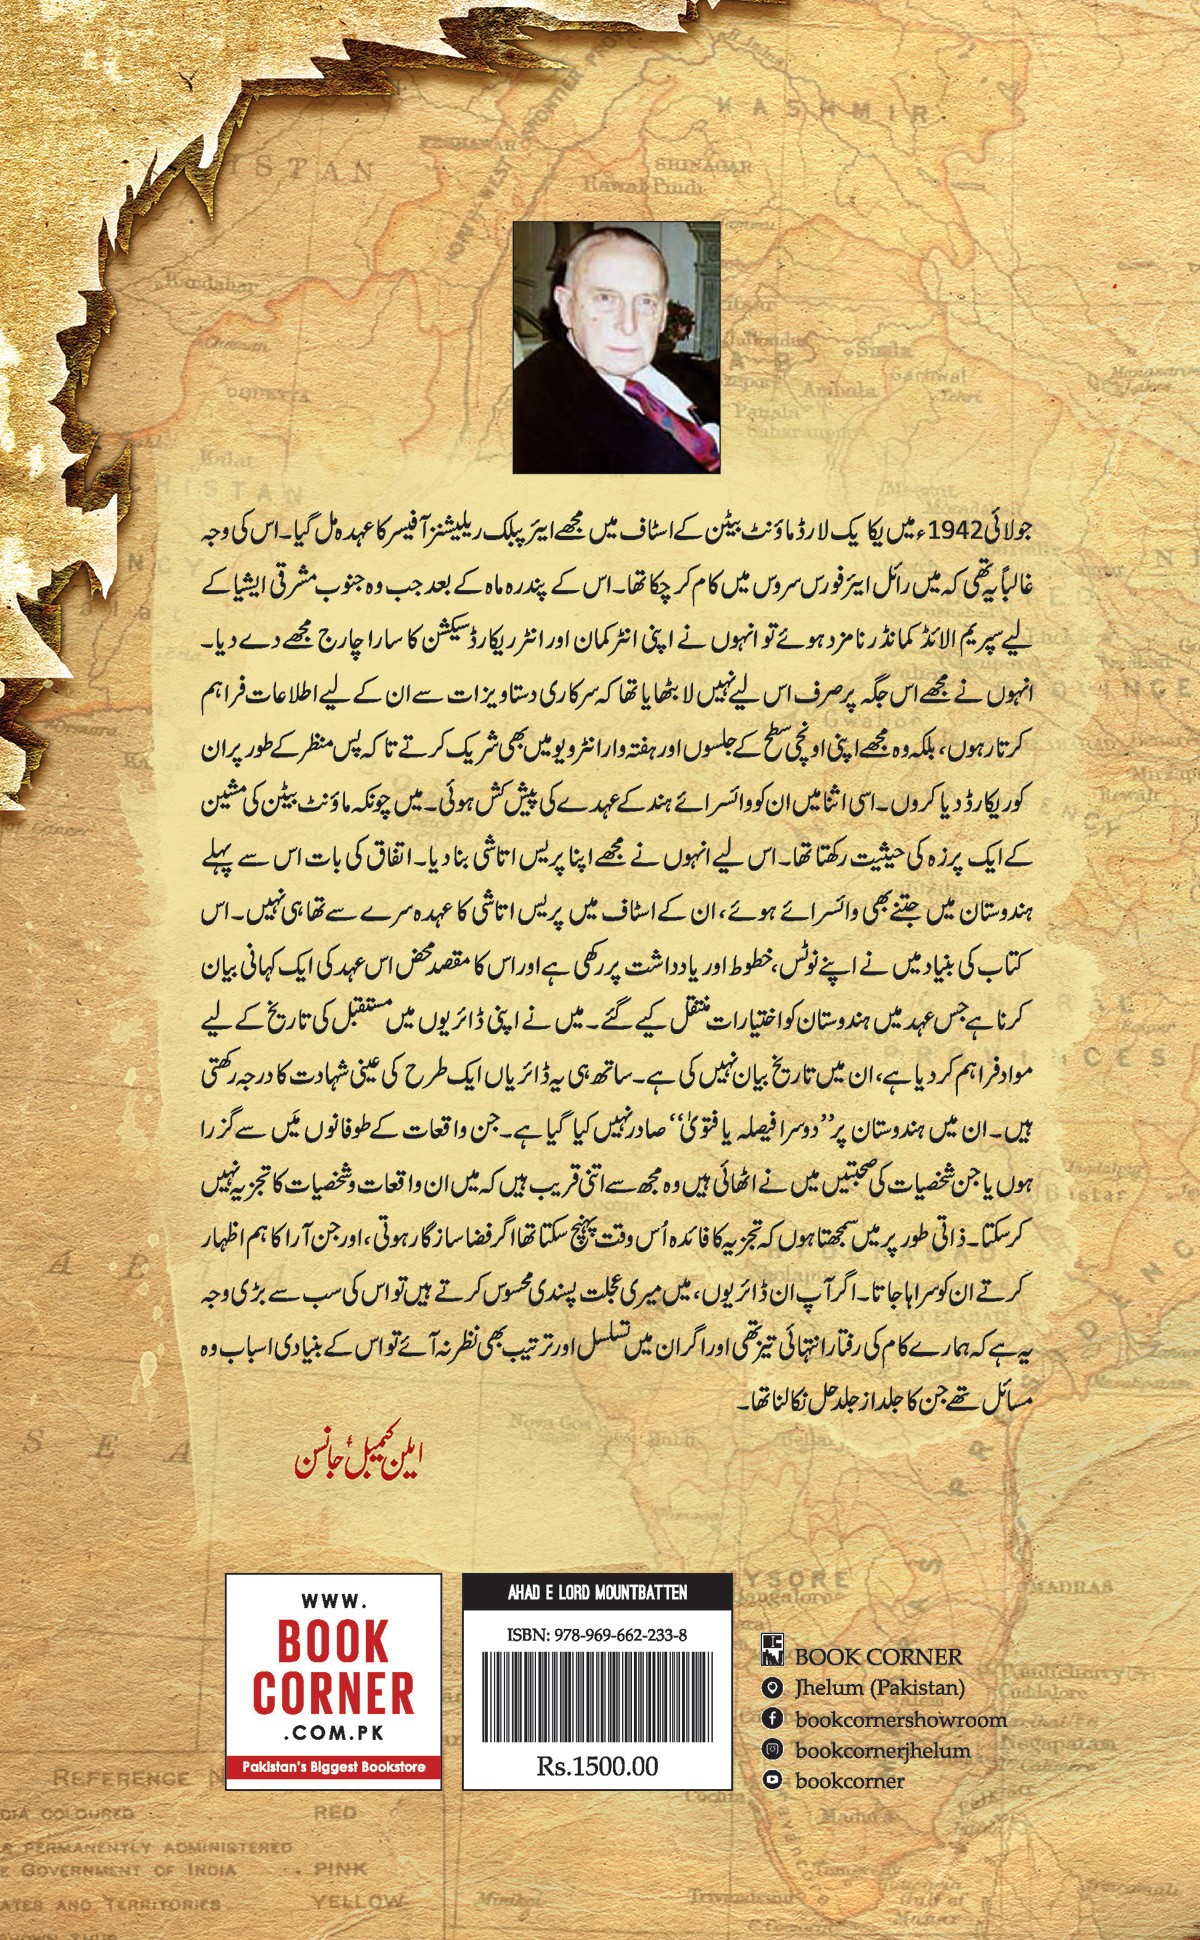 KASHMIR
SRINAGAR
Rawal Pindi
Kandahar
QUETTA
Kalat
Simla
Ambala
جولائی 1942ء میں یکایک لارڈ ماؤنٹ بیٹن کے اسٹاف میں مجھے ایئر پبلک ریلیشنز آفیسر کا عہدہ مل گیا۔ اس کی وجہ
غالباً یہ تھی کہ میں رائل ایئر فورس سروس میں کام کر چکا تھا۔ اس کے پندرہ ماہ کے بعد جب وہ جنوب مشرقی ایشیا کے
لیے سپریم الائڈ کمانڈر نامزد ہوئے تو انہوں نے اپنی انٹر کمان اور انٹر ریکارڈ سیکشن کا سارا چارج مجھے دے دیا۔
انہوں نے مجھے اس جگہ پر صرف اس لیے نہیں لا بٹھایا تھا کہ سرکاری دستاویزات سے ان کے لیے اطلاعات فراہم
کرتا رہوں، بلکہ وہ مجھے اپنی اونچی سطح کے جلسوں اور ہفتہ وار انٹرویو میں بھی شریک کرتے تاکہ پس منظر کے طور پر ان
کو ریکارڈ دیا کروں۔ اسی اثنا میں ان کو وائسرائے ہند کے عہدے کی پیش کش ہوئی۔ میں چونکہ ماؤنٹ بیٹن کی مشین
کے ایک پرزہ کی حیثیت رکھتا تھا۔ اس لیے انہوں نے مجھے اپنا پریس اتاشی بنا دیا۔ اتفاق کی بات اس سے پہلے
ہندوستان میں جتنے بھی وائسرائے ہوئے، ان کے اسٹاف میں پریس اتاشی کا عہدہ سرے سے تھا ہی نہیں۔ اس
کتاب کی بنیاد میں نے اپنے نوٹس، خطوط اور یادداشت پر رکھی ہے اور اس کا مقصد محض اس عہد کی ایک کہانی بیان
کرنا ہے جس عہد میں ہندوستان کو اختیارات منتقل کیے گئے۔ میں نے اپنی ڈائریوں میں مستقبل کی تاریخ کے لیے
مواد فراہم کر دیا ہے، ان میں تاریخ بیان نہیں کی ہے۔ ساتھ ہی یہ ڈائریاں ایک طرح کی عینی شہادت کا درجہ رکھتی
ہیں۔ ان میں ہندوستان پر ’’دوسرا فیصلہ یا فتویٰ‘‘ صادر نہیں کیا گیا ہے۔ جن واقعات کے طوفانوں میں سے گزرا
ہوں یا جن شخصیات کی صحبتیں میں نے اٹھائی ہیں وہ مجھ سے اتنی قریب ہیں کہ میں ان واقعات و شخصیات کا تجزیہ نہیں
کر سکتا۔ ذاتی طور پر میں سمجھتا ہوں کہ تجزیہ کا فائدہ اُس وقت پہنچ سکتا تھا اگر فضا سازگار ہوتی، اور جن آرا کا ہم اظہار
کرتے ان کو سراہا جاتا۔ اگر آپ ان ڈائریوں، میں میری عجلت پسندی محسوس کرتے ہیں تو اس کی سب سے بڑی وجہ
یہ ہے کہ ہمارے کام کی رفتار انتہائی تیز تھی اور اگر ان میں تسلسل اور ترتیب بھی نظر نہ آئے تو اس کے بنیادی اسباب وہ
مسائل تھے جن کا جلد از جلد حل نکالنا تھا۔
ایلن کیمبل جانسن
WWW.
BOOK
CORNER
.COM.PK
Pakistan's Biggest Bookstore
AHAD E LORD MOUNTBATTEN
ISBN: 978-969-662-233-8
Rs.1500.00
BOOK CORNER
Jhelum (Pakistan)
bookcornershowroom
bookcornerjhelum
bookcorner
MADRAS
RED
PERMANENTLY ADMINISTERED
GOVERNMENT OF INDIA
PINK
AND TERRITORIES
YELLOW